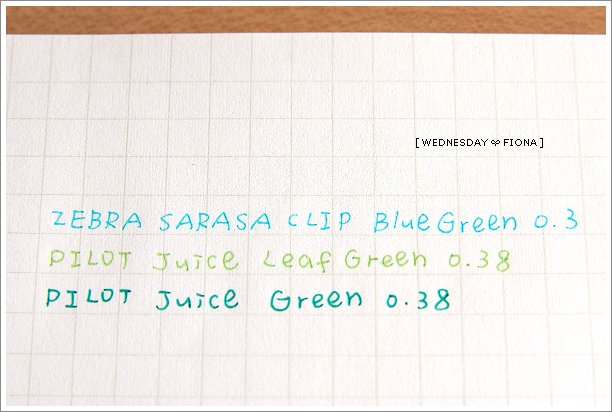 [ WEDNESDAY FIONA ]
ZEBRA SARASA CLIP Blue Green 0.3
PILOT Juice Leaf Green 0.38
PILOT Juice Green 0.38